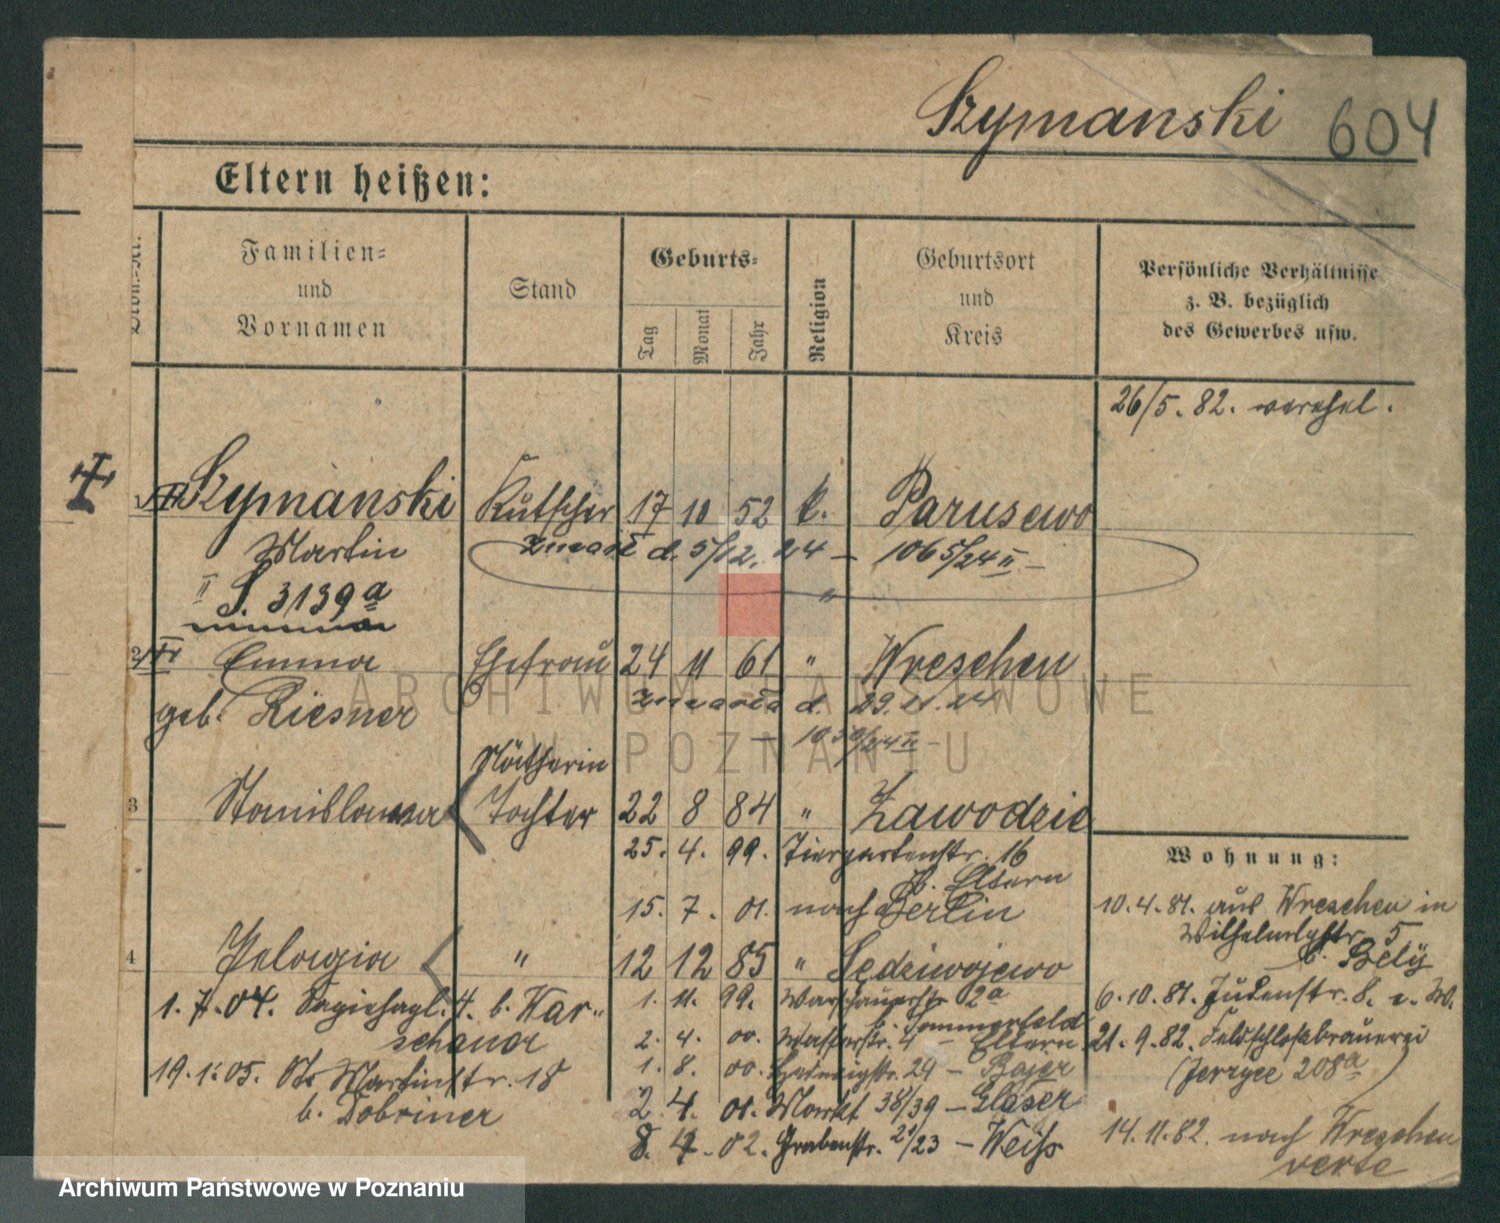 Szymanski 604
Eltern heißen:
Familien=
und
Vornamen
Stand
Geburts=
Tag
Monat
Jahr
Religion
Geburtsort
und
Kreis
Persönliche Verhältnisse
z. B. bezüglich
des Gewerbes usw.
26/5. 82. verehel.
Szymanski Kutscher 17 10 52 k. Parusewo
Martin zmarł d. 5/12. 24 – 1065/24 II –
II S. 3139a "
2 Emma Ehefrau 24 11 61 " Wreschen
geb. Riesner zmarła d. 29.11.24
Nätherin
3 Stanislawa Tochter 22 8 84 " Zawodzie
25. 4. 99. Tiergartenstr. 16
b. Eltern
15. 7. 01. nach Berlin
4 Pelagia " 12 12 85 " Sedziwojewo
1. 7. 04. 4. b. War-
schauer
19. 1. 05. St. Martinstr. 18
b. Dobriner
1. 11. 99. Warschauerstr. 2a
b. Sommerfeld
2. 4. 00. Wasserstr. 4 – Eltern
1. 8. 00. Hedwigstr. 24 – Bajer
2. 4. 01. Markt 38/39 – Gläser
8. 4. 02. Grabenstr. 21/23 – Weiss
Wohnung:
10. 4. 81. aus Wreschen in
Wilhelmsstr. 5
b. Bely
6. 10. 81. Judenstr. 8.
21. 9. 82. Feldschloßbrauerei
(Jerzyce 208a)
14. 11. 82. nach Wreschen
verte
ARCHIWUM PAŃSTWOWE
W POZNANIU
Archiwum Państwowe w Poznaniu